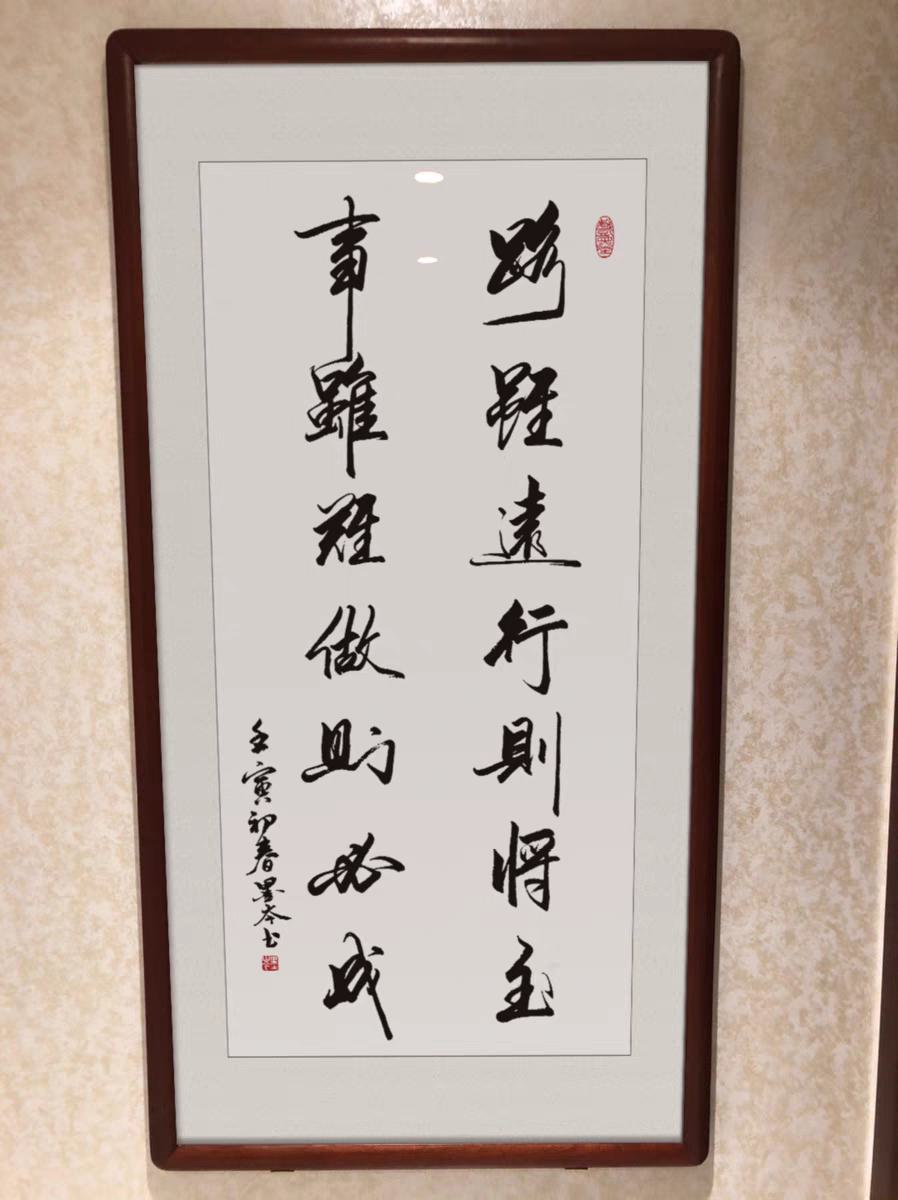 路雖遠行則將至
事雖難做則必成
壬寅初春墨岑书